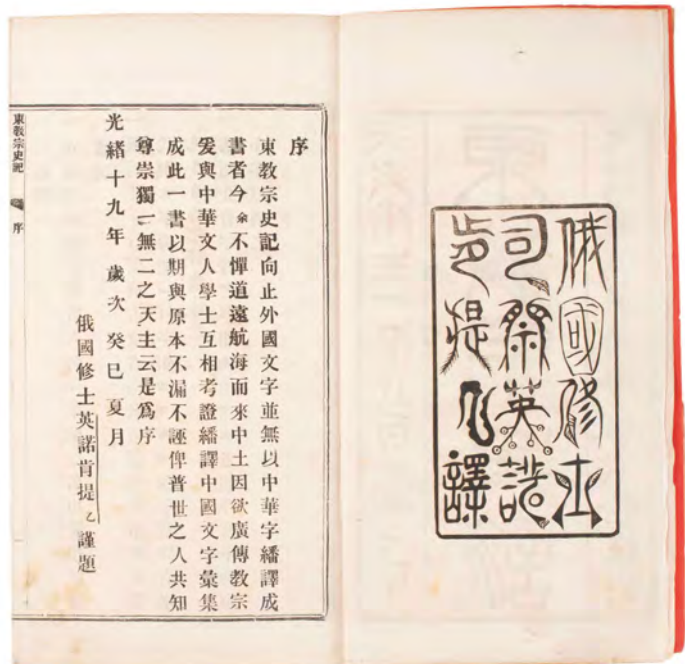 俄國修士
司祭英諾
肯提乙譯
序
東教宗史記向止外國文字並無以中華字繙譯成
書者今余不憚道遠航海而來中土因欲廣傳教宗
爰與中華文人學士互相考證繙譯中國文字彙集
成此一書以期與原本不漏不誣俾普世之人共知
尊崇獨一無二之天主云是爲序
光緒十九年歲次癸巳夏月
俄國修士英諾肯提乙謹題
東教宗史記 序